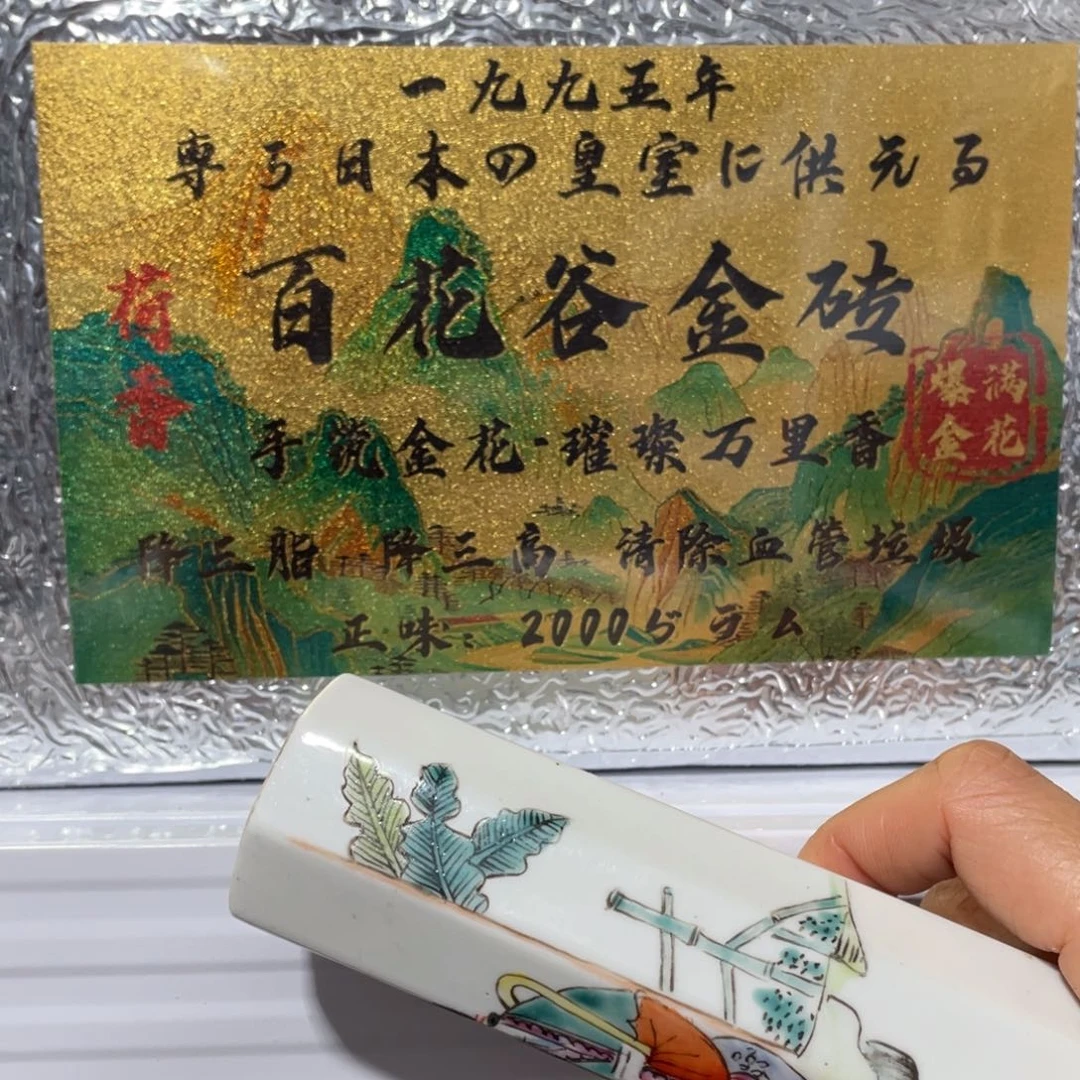 一九九五年
専ら日本の皇室に供元る
百花谷金砖
荷香
爆满
金花
手筑金花·璀璨万里香
降三脂 降三高 清除血管垃圾
正味：2000グラム